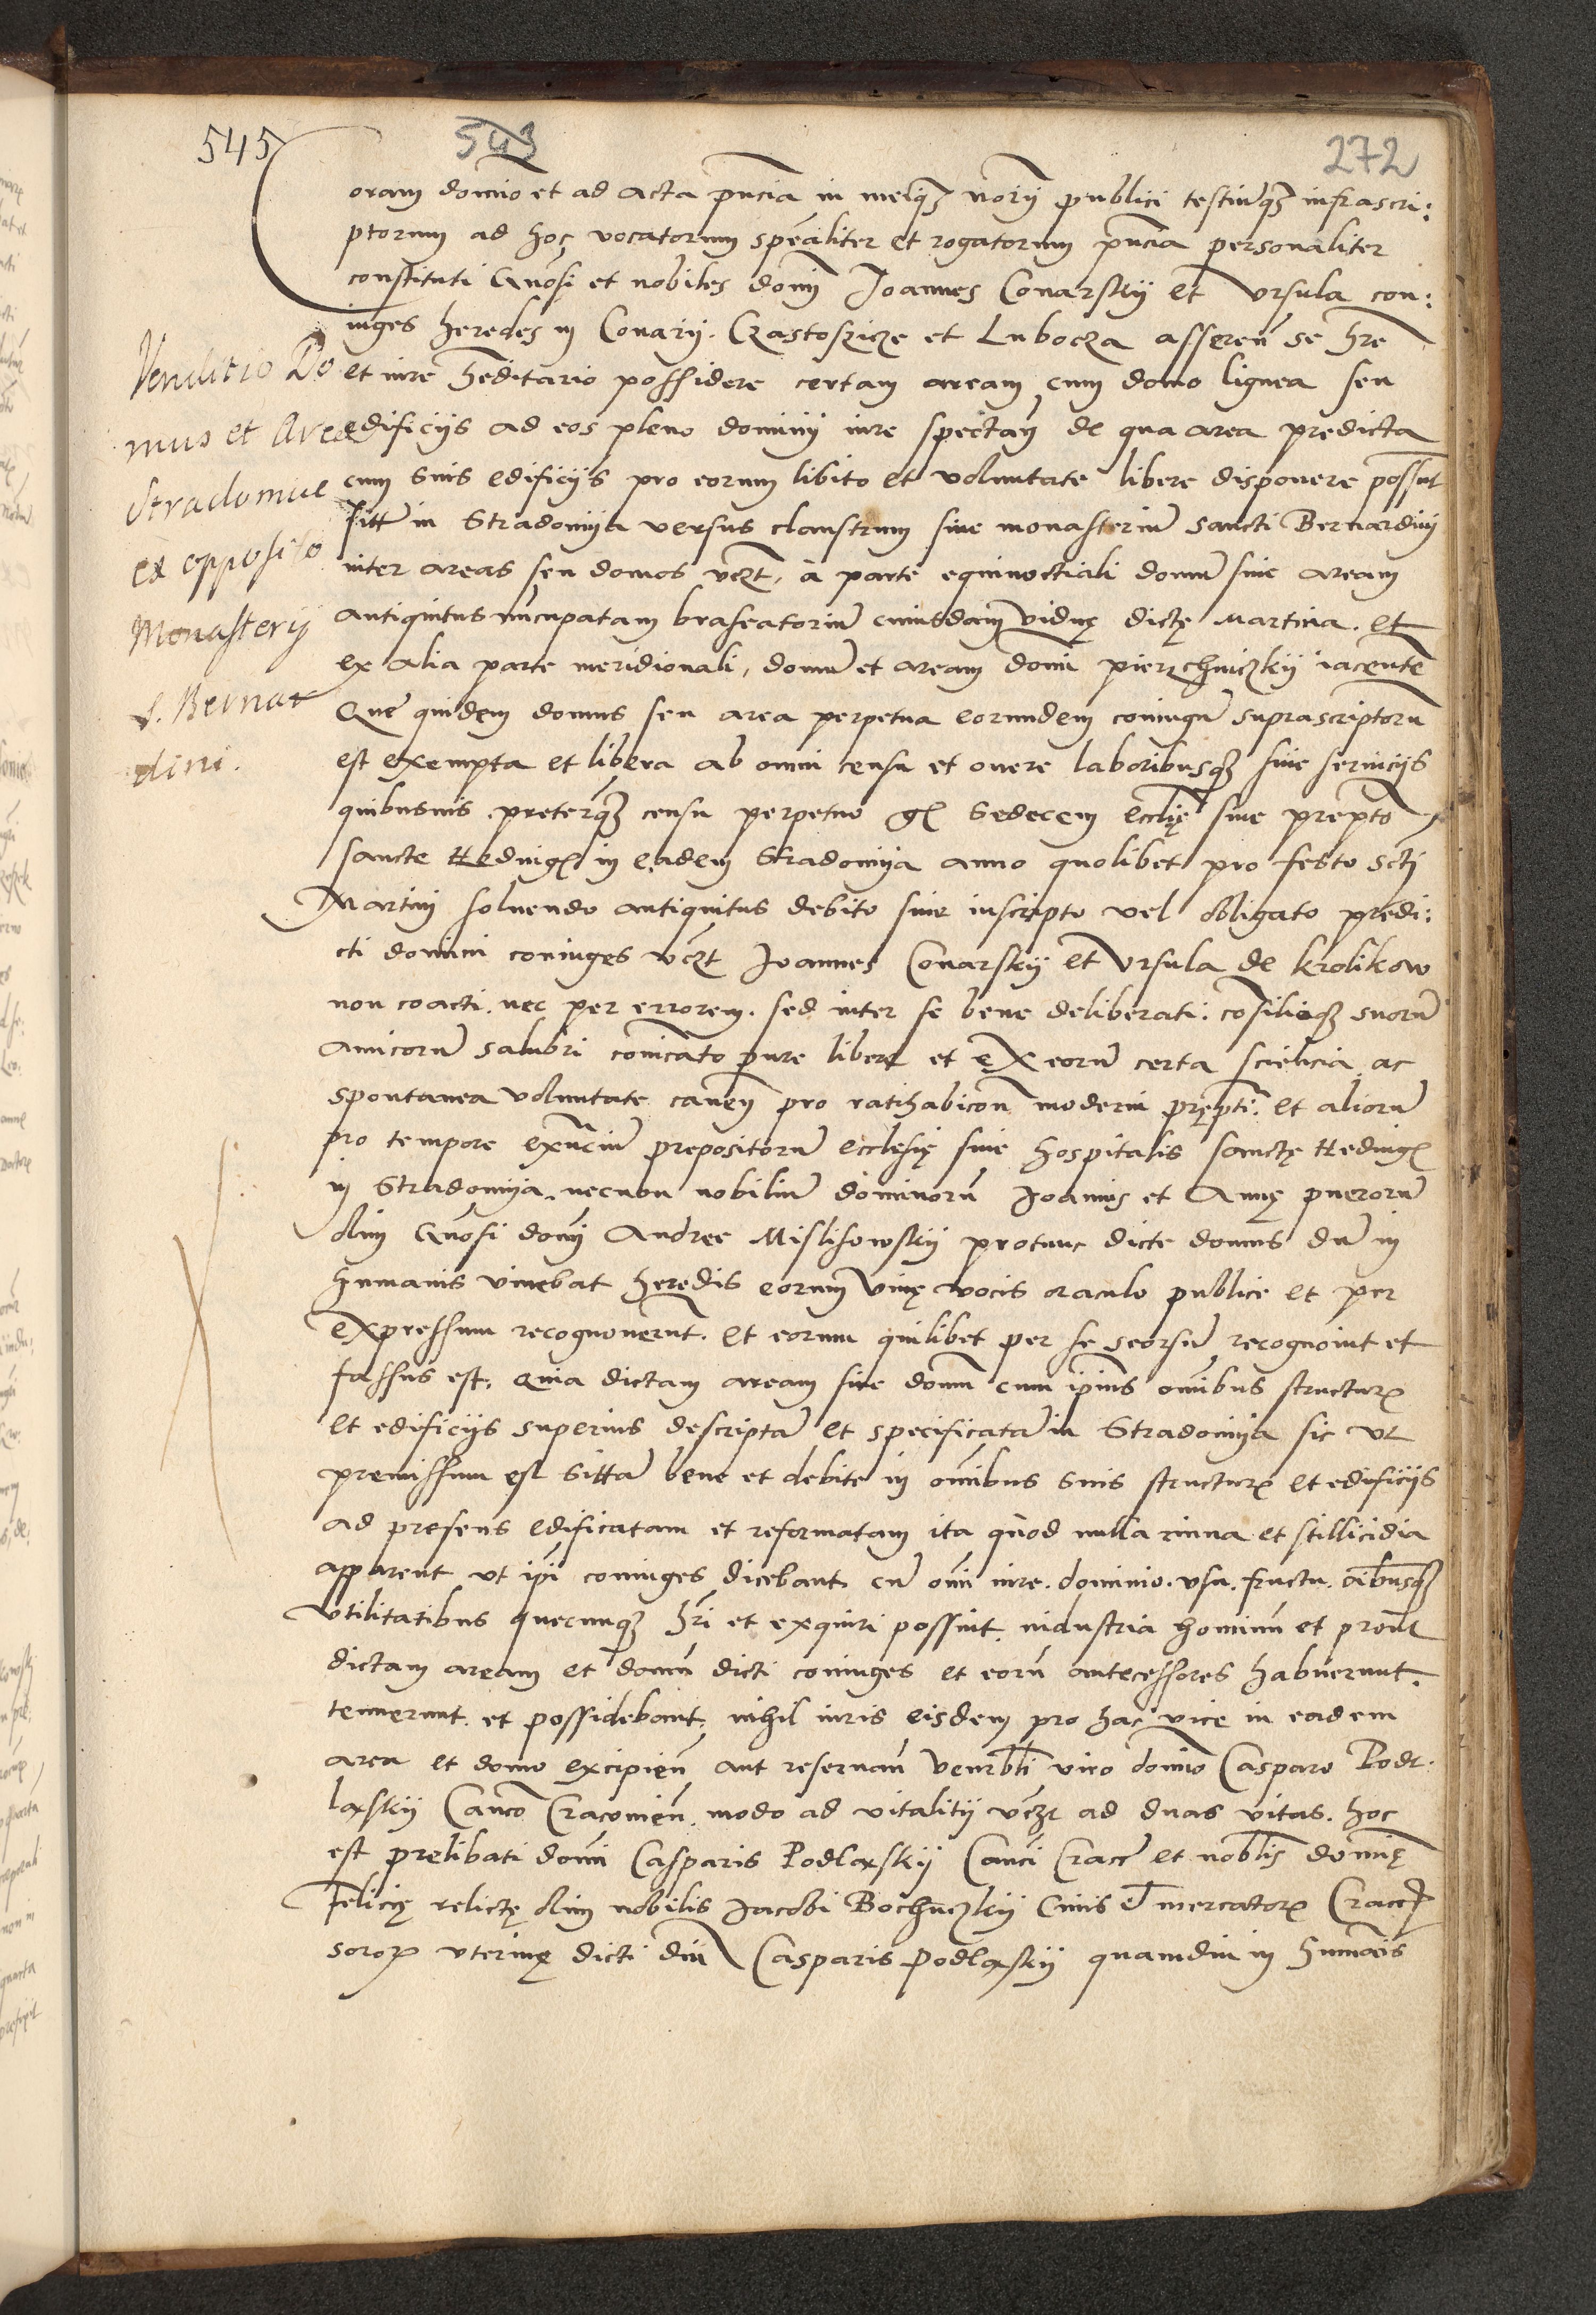 545
543
272
Coram domino et ad acta pncia in meiqz norii publici testiumqz infrascri:
ptorum ad hoc vocatorum specialiter et rogatorum pncia personaliter
constituti Gnosi et nobiles domi Joannes Conarskij et Vrsula con:
iuges heredes in Conarij. Czastoszicze et Lubocza asseren se hre
et iure heditario possidere certam aream cum domo lignea seu
edificijs ad eos pleno dominij iure spectan de qua area predicta
cum suis edificijs pro eorum libito et voluntate libere disponere possut
sitt in Stradomija versus claustrum siue monasterium sancti Bernardini
inter areas seu domos vczt, à parte equinoctiali domum siue aream
antiquitus nuncupatam braseatorium cuiusdam viduę dictę Martina. et
ex alia parte meridionali, domum et aream domi pierzchniczkij iacentem
Que quidem domus seu area perpetua eorundem coniugum suprascriptorum
est exempta et libera ab omni censu et onere laboribusqz siue seruicijs
quibusuis preterqz censu perpetuo gr Sedecem ecclię siue prepto
sancte Hedwigis in eadem Stradomija anno quolibet pro festo scti
Martini soluendo antiquitus debito siue inscripto vel obligato predi:
cti domini coniuges vczt Joannes Conarskij et Vrsula de Krolikow
non coacti. nec per errorem. sed inter se bene deliberati: cosilioqz suorum
amicorum salubri comicato pure libere et ex eorum certa sciencia ac
spontanea voluntate cauen pro ratihabicon moderni pręptti. et aliorum
pro tempore existencium prepositorum ecclesię siue hospitalis sanctę Hedwigis
in Stradomija. necnon nobilium dominorum Joannis et Annę puerorum
olim Gnosi domi Andree Mislisowskij protunc dicte domus dum in
humanis viuebat heredis eorum viuę vocis oraculo publice et per
expressum recognouerunt. et eorum quilibet per se seorsum recognouit et
fassus est, Quia dictam aream siue domum cum ipius omibus structuris
et edificijs superius descriptam et specificatam in Stradomija sic vt
premissum est sittam bene et debite in omibus suis structuris et edificijs
ad presens edificatam et reformatam ita quod nulla ruina et stillicidia
apparent vt ipi coniuges dicebant cum omi iure. dominio. vsu. fructu. oibusqz
vtilitatibus quecunqz hri et exquiri possint, industria hominum et prout
dictam aream et domum dicti coniuges et eorum antecessores habuerunt.
tenuerunt et possidebant, nihil iuris eisdem pro hac vice in eadem
area et domo excipien aut reseruan Venrbli viro domino Casparo Podl:
laskij Canco Cracouien. modo ad vitalitij vczt ad duas vitas. hoc
est prelibati domi Casparis Podlaskij Canci Cracc et noblis dominę
Felicię relictę olim nobilis Jacobi Bochuczkij Ciuis et mercatoris Cracc
sororis vterinę dicti dni Casparis Podlaskij quamdiu in humais
Venditio Do
mus et Areae
Stradomiae
ex opposito
Monasterij
S. Bernar
dini.